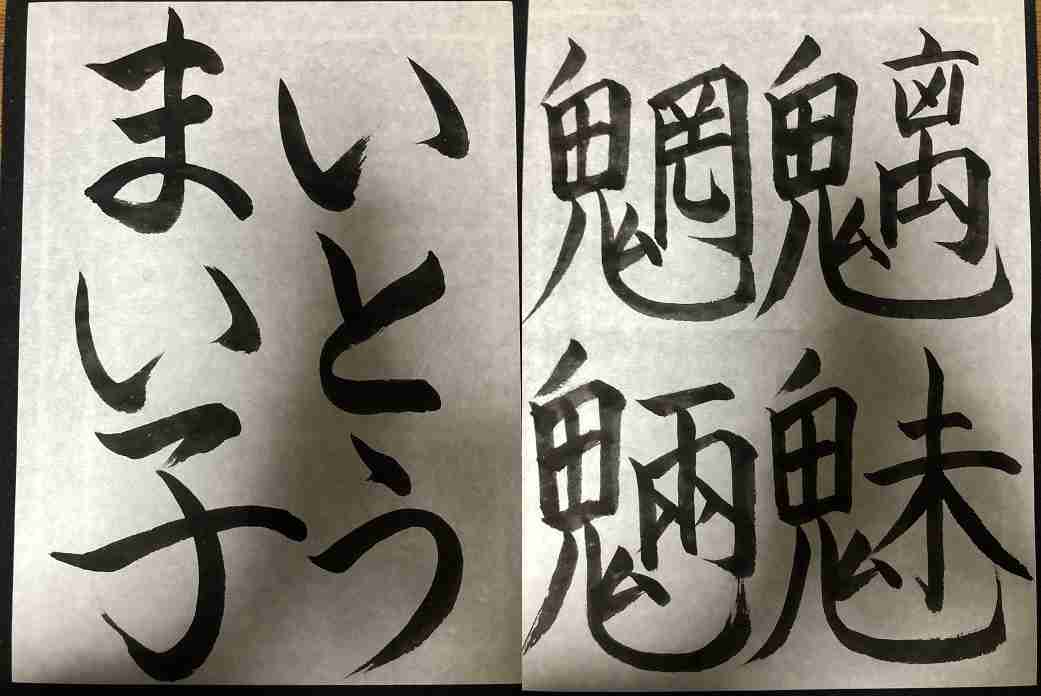 魑魅
魍魎
いとう
まい子